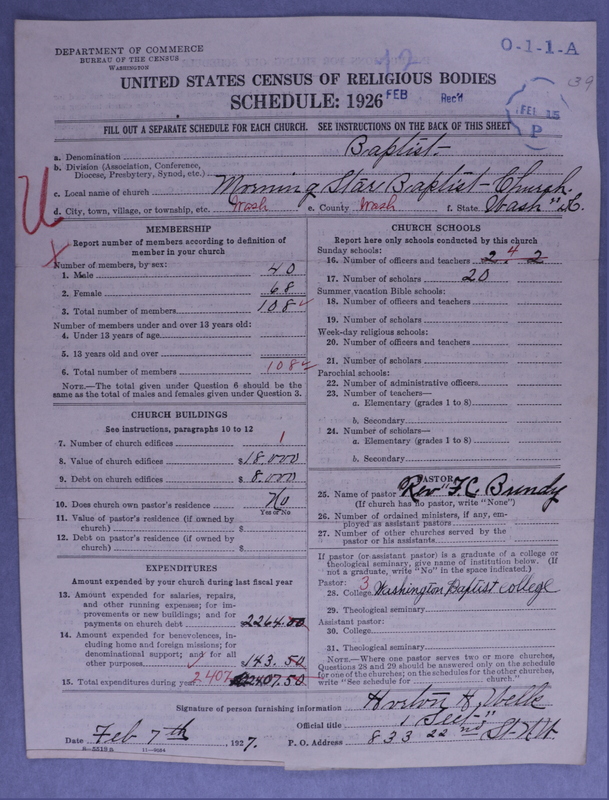 DEPARTMENT OF COMMERCE
BUREAU OF THE CENSUS
WASHINGTON
O-1-1-A
39
UNITED STATES CENSUS OF RELIGIOUS BODIES
SCHEDULE: 1926
12
FEB Rec'd
FEB 15
P
FILL OUT A SEPARATE SCHEDULE FOR EACH CHURCH. SEE INSTRUCTIONS ON THE BACK OF THIS SHEET
a. Denomination Baptist
b. Division (Association, Conference, Diocese, Presbytery, Synod, etc.)
c. Local name of church Morning Star Baptist Church.
d. City, town, village, or township, etc. Wash e. County Wash f. State Wash" D.C.
MEMBERSHIP
Report number of members according to definition of
member in your church
Number of members, by sex:
1. Male 40
2. Female 68
3. Total number of members 108
Number of members under and over 13 years old:
4. Under 13 years of age
5. 13 years old and over
6. Total number of members 108
NOTE.—The total given under Question 6 should be
same as the total of males and females given under Question 3.
CHURCH BUILDINGS
See instructions, paragraphs 10 to 12
7. Number of church edifices 1
8. Value of church edifices $18,000
9. Debt on church edifices $8,000
10. Does church own pastor's residence No
Yes or No
11. Value of pastor's residence (if owned by
church) $
12. Debt on pastor's residence (if owned by
church) $
EXPENDITURES
Amount expended by your church during last fiscal year
13. Amount expended for salaries, repairs,
and other running expenses; for im-
provements or new buildings; and for
payments on church debt $2264.00
14. Amount expended for benevolences, in-
cluding home and foreign missions; for
denominational support; and for all
other purposes 143.50
15. Total expenditures during year 2407 2407.50
CHURCH SCHOOLS
Report here only schools conducted by this church
Sunday schools:
16. Number of officers and teachers 2 4 2
17. Number of scholars 20
Summer vacation Bible schools:
18. Number of officers and teachers
19. Number of scholars
Week-day religious schools:
20. Number of officers and teachers
21. Number of scholars
Parochial schools:
22. Number of administrative officers
23. Number of teachers—
a. Elementary (grades 1 to 8)
b. Secondary
24. Number of scholars—
a. Elementary (grades 1 to 8)
b. Secondary
PASTOR
25. Name of pastor Rev" F.C. Bundy
(If church has no pastor, write "None")
26. Number of ordained ministers, if any, em-
ployed as assistant pastors
27. Number of other churches served by the
pastor or his assistants
If pastor (or assistant pastor) is a graduate of a college or
theological seminary, give name of institution below. (If
not a graduate, write "No" in the space indicated.)
Pastor: 3
28. College Washington Baptist College
29. Theological seminary
Assistant pastor:
30. College
31. Theological seminary
NOTE.—Where one pastor serves two or more churches,
Questions 28 and 29 should be answered only on the schedule
for one of the churches; on the schedules for the other churches,
write "See schedule for church."
Signature of person furnishing information
Official title
Date Feb 7th 1927. P. O. Address 833 22nd St NW
8-5519 b 11-9084